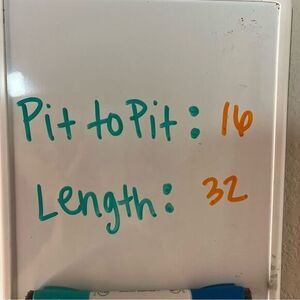 Pit to Pit: 16
Length: 32